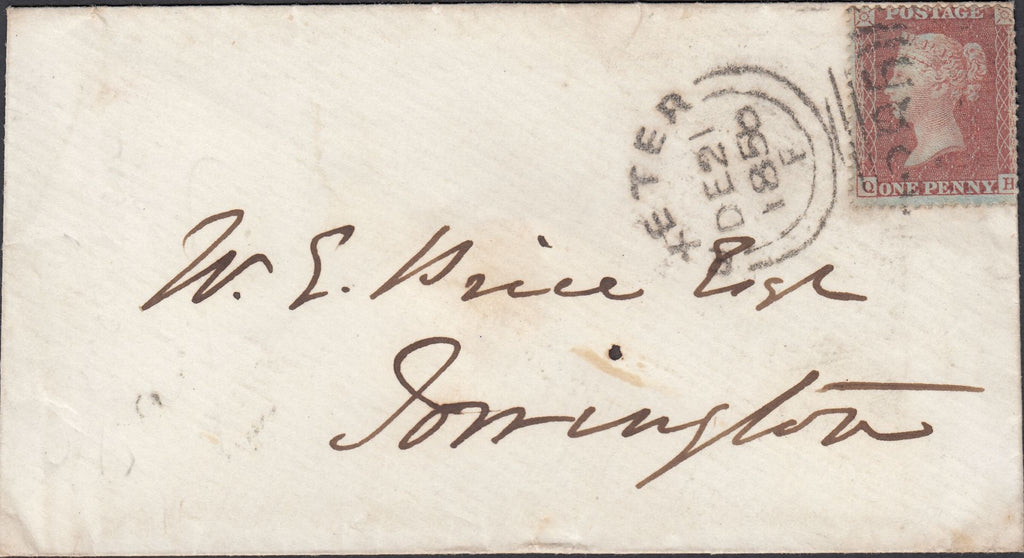 POSTAGE
Q ONE PENNY H
XETER
DE 21
1858
F
285
W. E. Price Esqr
Torrington